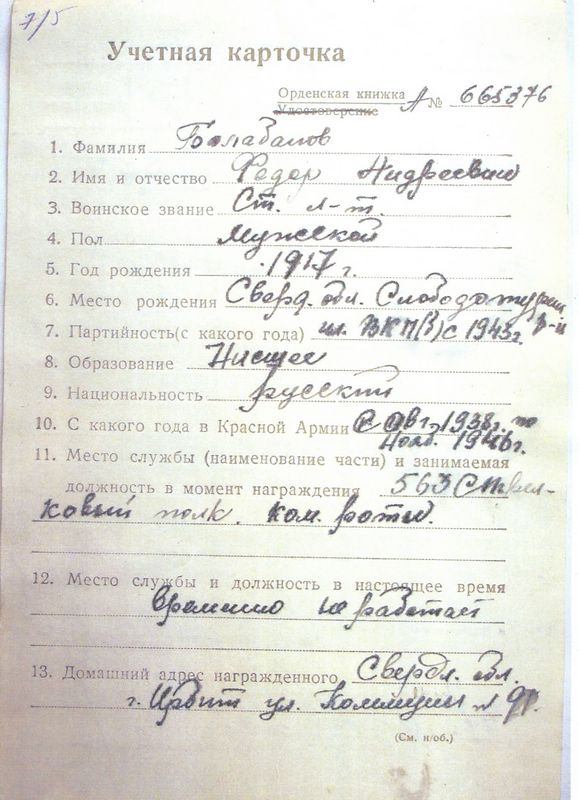 7/5
Учетная карточка
Орденская книжка А № 665376
Удостоверение
1. Фамилия Балабанов
2. Имя и отчество Федор Андреевич
3. Воинское звание Ст. л-т.
4. Пол Мужской
5. Год рождения 1917 г.
6. Место рождения Сверд. обл. Слободотурин.
7. Партийность(с какого года) чл. ВКП(б) с 1943г. р-н
8. Образование Низшее
9. Национальность русский
10. С какого года в Красной Армии с авг. 1938г. по
нояб. 1946г.
11. Место службы (наименование части) и занимаемая
должность в момент награждения 563 Стрел-
ковый полк. ком. роты.
12. Место службы и должность в настоящее время
временно не работает
13. Домашний адрес награжденного Свердл. обл.
г. Ирбит ул. Коммуны
(См. н/об.)